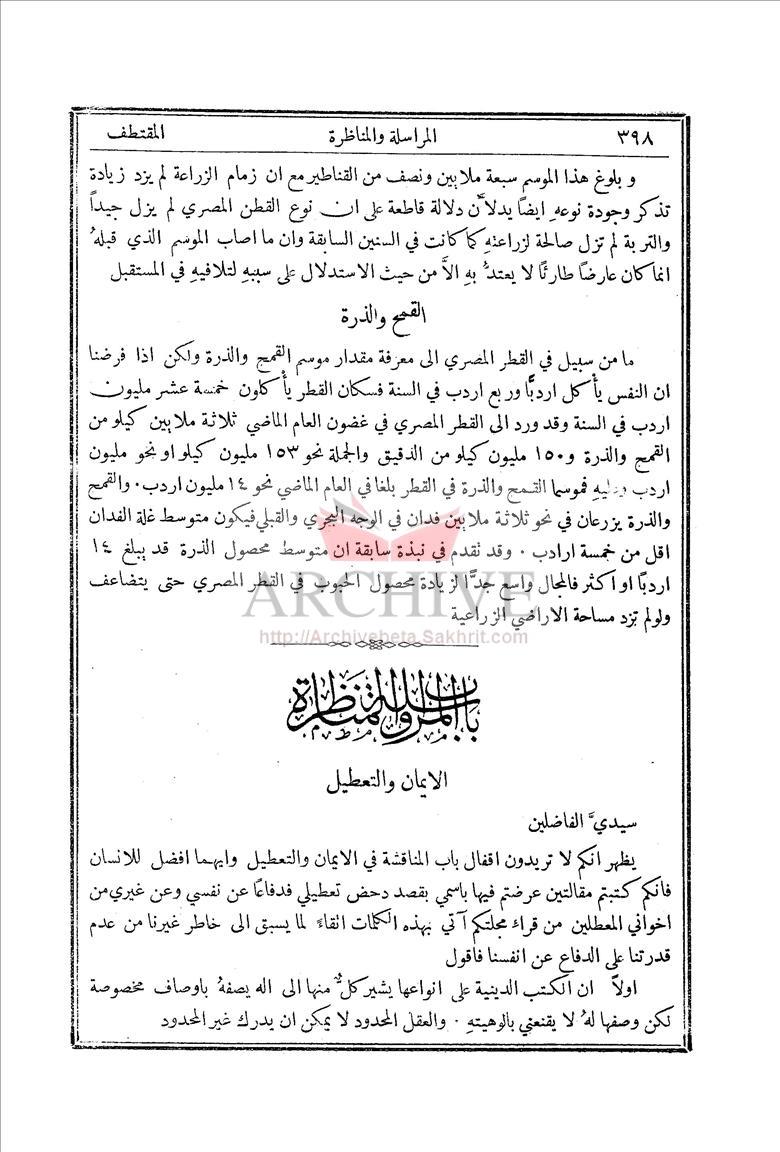 ٣٩٨ المراسلة والمناظرة المقتطف
و بلوغ هذا الموسم سبعة ملايين ونصف من القناطير مع ان زمام الزراعة لم يزد زيادة
تذكر وجودة نوعهِ ايضاً يدلاَّن دلالة قاطعة على ان نوع القطن المصري لم يزل جيداً
والتربة لم تزل صالحة لزراعتهِ كما كانت في السنين السابقة وان ما اصاب الموسم الذي قبلهُ
انما كان عارضاً طارئاً لا يعتدُّ بهِ الاَّ من حيث الاستدلال على سببهِ لتلافيهِ في المستقبل
القمح والذرة
ما من سبيل في القطر المصري الى معرفة مقدار موسم القمح والذرة ولكن اذا فرضنا
ان النفس يأكل اردبًّا وربع اردب في السنة فسكان القطر يأكلون خمسة عشر مليون
اردب في السنة وقد ورد الى القطر المصري في غضون العام الماضي ثلاثة ملايين كيلو من
القمح والذرة و١٥٠ مليون كيلو من الدقيق والجملة نحو ١٥٣ مليون كيلو او نحو مليون
اردب وعليهِ فموسما القمح والذرة في القطر بلغا في العام الماضي نحو ١٤ مليون اردب. والقمح
والذرة يزرعان في نحو ثلاثة ملايين فدان في الوجه البحري والقبلي فيكون متوسط غلة الفدان
اقل من خمسة ارادب . وقد تقدم في نبذة سابقة ان متوسط محصول الذرة قد يبلغ ١٤
اردبًا او اكثر فالمجال واسع جدًّا لزيادة محصول الحبوب في القطر المصري حتى يتضاعف
ولو لم تزد مساحة الاراضي الزراعية
ARCHIVE
http://Archivebeta.Sakhrit.com
باب المراسلة والمناظرة
الايمان والتعطيل
سيديَّ الفاضلين
يظهر انكم لا تريدون اقفال باب المناقشة في الايمان والتعطيل وايهما افضل للانسان
فانكم كتبتم مقالتين عرضتم فيها باسمي بقصد دحض تعطيلي فدفاعًا عن نفسي وعن غيري من
اخواني المعطلين من قراء مجلتكم آتي بهذه الكلمات اتقاءً لما يسبق الى خاطر غيرنا من عدم
قدرتنا على الدفاع عن انفسنا فاقول
اولاً ان الكتب الدينية على انواعها يشير كلٌّ منها الى اله يصفهُ باوصاف مخصوصة
لكن وصفها لهُ لا يقنعني بالوهيتهِ . والعقل المحدود لا يمكن ان يدرك غير المحدود